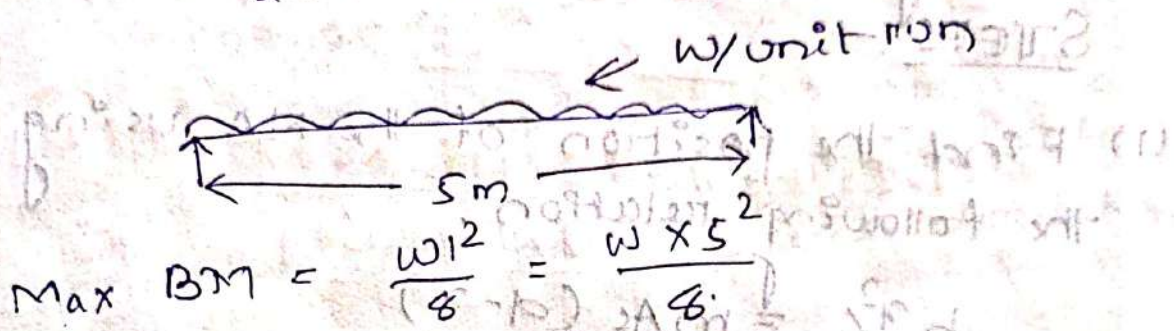 w/unit run
5m
Max BM = wl²/8 = w x 5²/8